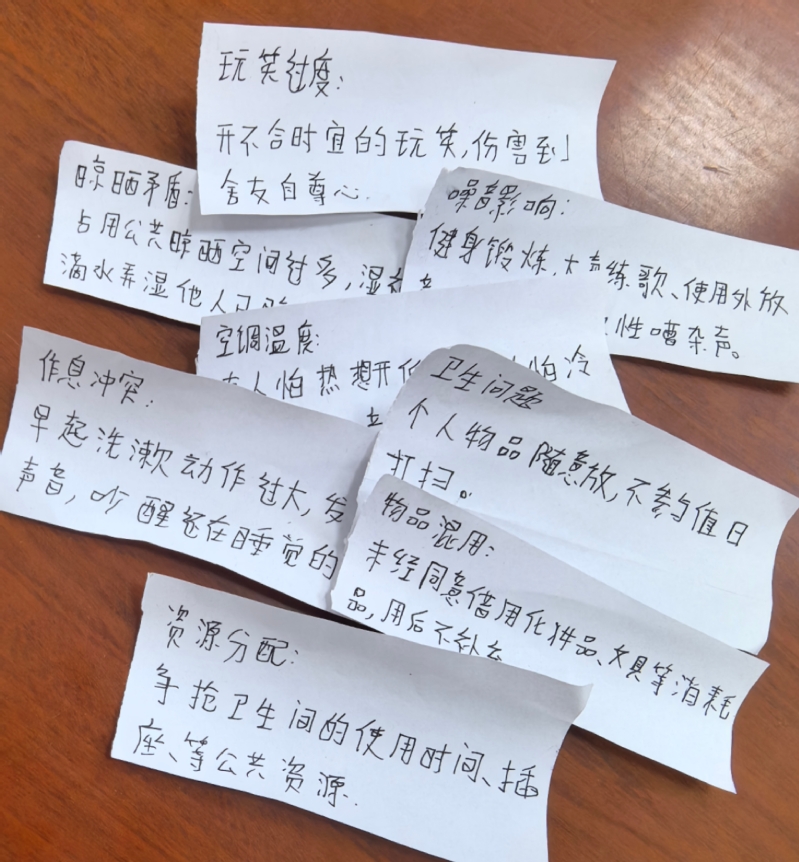 玩笑过度:
开不合时宜的玩笑,伤害到
舍友自尊心.
晾晒矛盾:
占用公共晾晒空间过多,湿
滴水弄湿他人
噪音影响:
健身锻炼、大声练歌、使用外放
性嘈杂声。
空调温度:
人怕热想开 怕冷
作息冲突:
早起洗漱动作过大,发
声音,吵醒还在睡觉的
卫生问题
个人物品随意放,不参与值日
打扫。
物品混用:
未经同意借用化妆品、文具等消耗
品,用后不补充
资源分配:
争抢卫生间的使用时间、插
座、等公共资源.